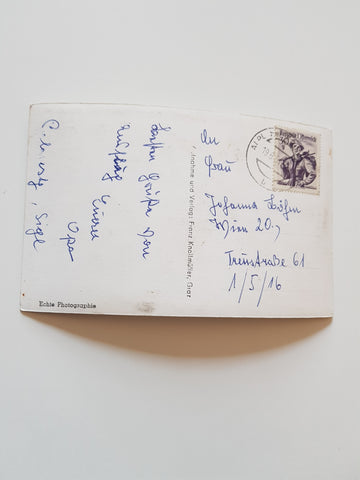 Besten Grüße von
Ausflug Euer
Opa
An
Frau
Johanna Böhm
Wien 20.,
Treustraße 61
1/5/16
Aufnahme und Verlag: Franz Knollmüller, Graz
Echte Photographie